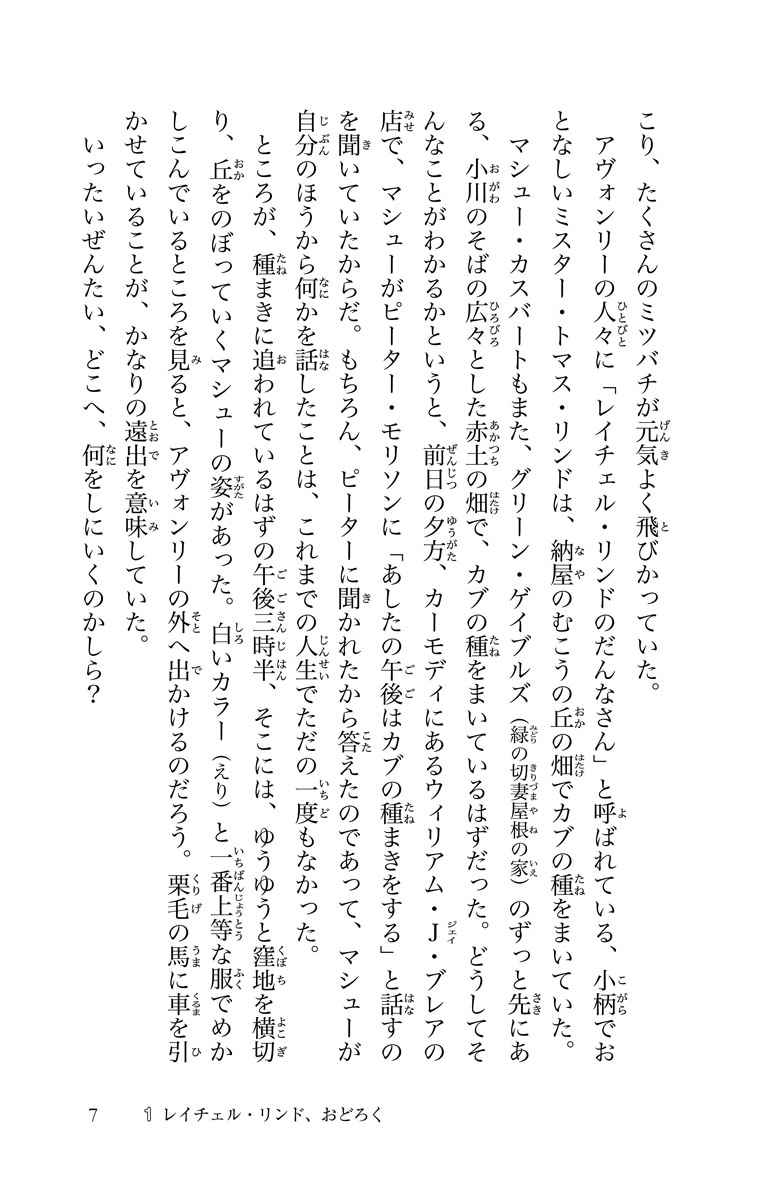 こり、たくさんのミツバチが元気よく飛びかっていた。
アヴォンリーの人々に「レイチェル・リンドのだんなさん」と呼ばれている、小柄でお
となしいミスター・トマス・リンドは、納屋のむこうの丘の畑でカブの種をまいていた。
マシュー・カスバートもまた、グリーン・ゲイブルズ（緑の切妻屋根の家）のずっと先にあ
る、小川のそばの広々とした赤土の畑で、カブの種をまいているはずだった。どうしてそ
んなことがわかるかというと、前日の夕方、カーモディにあるウィリアム・J・ブレアの
店で、マシューがピーター・モリソンに「あしたの午後はカブの種まきをする」と話すの
を聞いていたからだ。もちろん、ピーターに聞かれたから答えたのであって、マシューが
自分のほうから何かを話したことは、これまでの人生でただの一度もなかった。
ところが、種まきに追われているはずの午後三時半、そこには、ゆうゆうと窪地を横切
り、丘をのぼっていくマシューの姿があった。白いカラー（えり）と一番上等な服でめか
しこんでいるところを見ると、アヴォンリーの外へ出かけるのだろう。栗毛の馬に車を引
かせていることが、かなりの遠出を意味していた。
いったいぜんたい、どこへ、何をしにいくのかしら？
7 1 レイチェル・リンド、おどろく